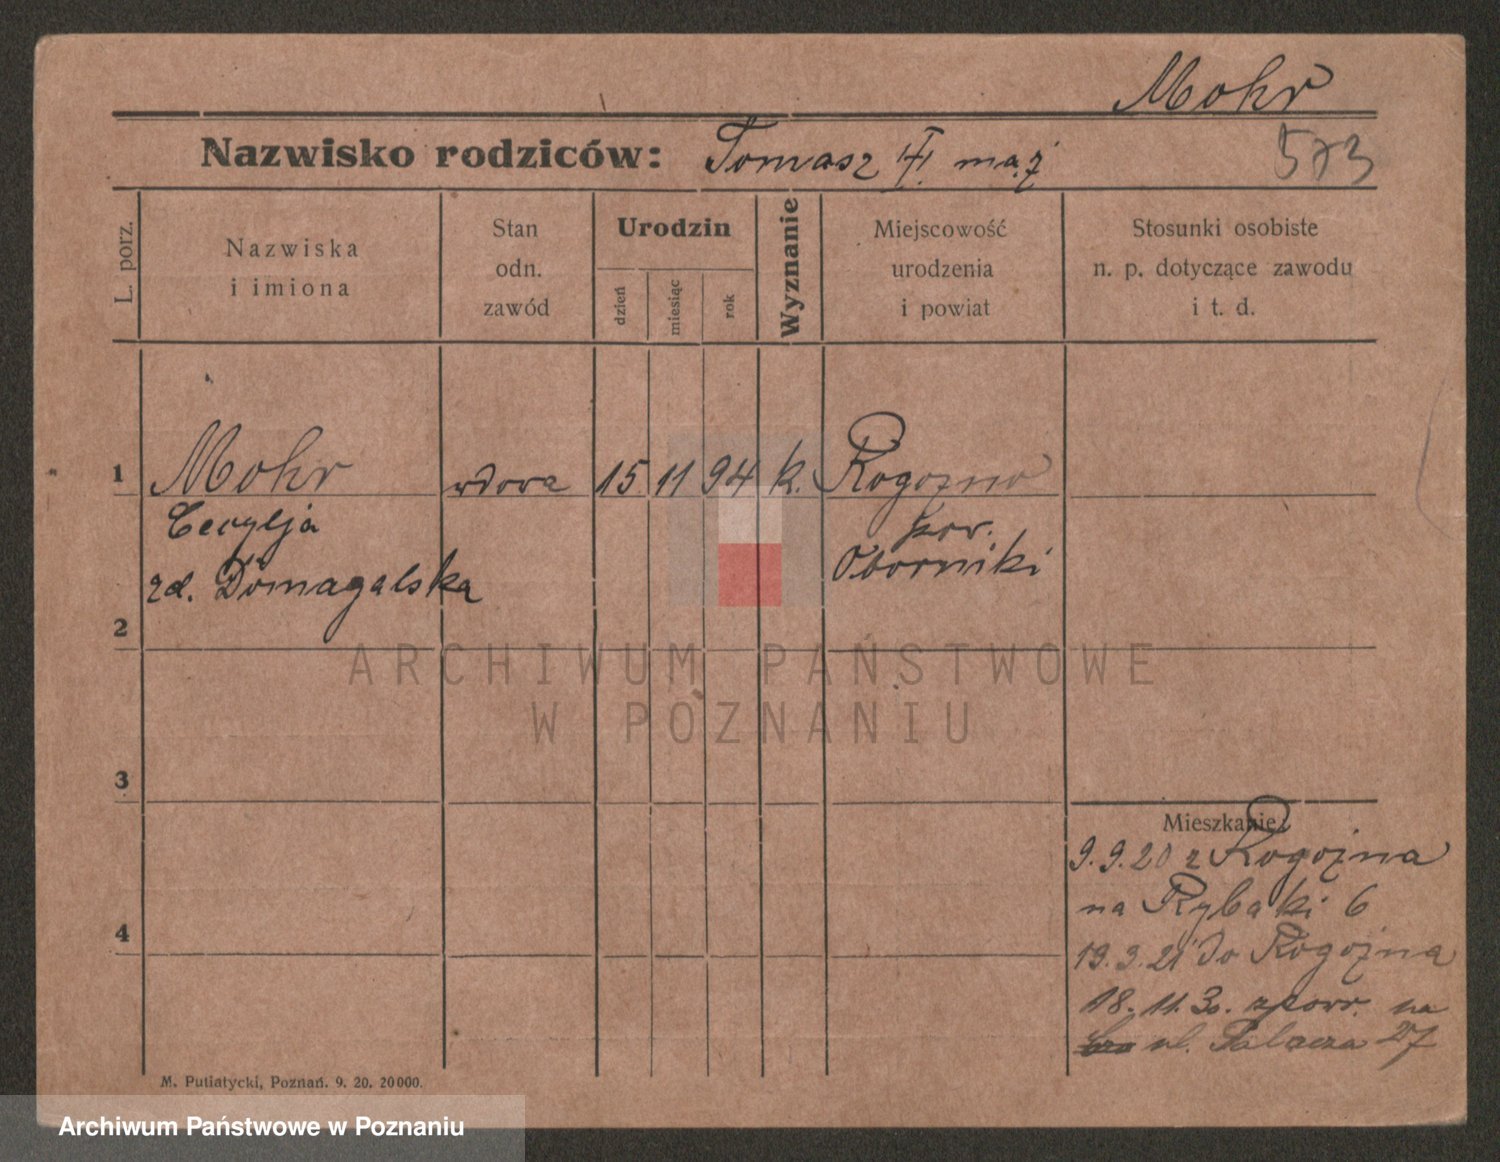 Mohr
Nazwisko rodziców: Tomasz maż
573
L. porz.
Nazwiska
i imiona
Stan
odn.
zawód
Urodzin
dzień
miesiąc
rok
Wyznanie
Miejscowość
urodzenia
i powiat
Stosunki osobiste
n. p. dotyczące zawodu
i t. d.
1 Mohr wdowa 15 11 94 k. Rogozno
Cecylja pow.
zd. Domagalska Oborniki
2
ARCHIWUM PAŃSTWOWE
W POZNANIU
3
Mieszkanie
9.9.20 z Rogoźna
na Rybaki 6
4
19.3.21 do Rogoźna
18.11.30. zpowr. na
ul. Palacza 27
M. Putiatycki, Poznań. 9. 20. 20000.
Archiwum Państwowe w Poznaniu